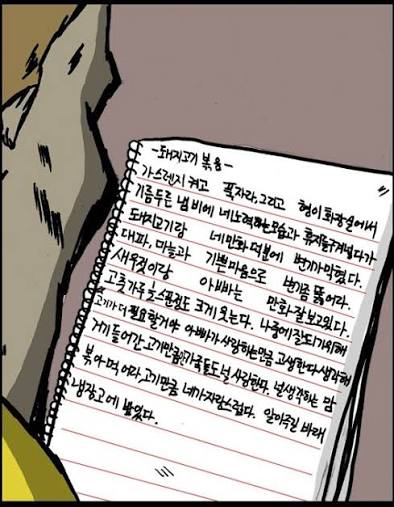 -돼지고기 볶음-
가스렌지 켜고 푹자라, 그리고 형이 화장실에서
기름두른 냄비에 네노력하는모습과 휴지물구겨넣다가
돼지고기랑 네만화 덕분에 변기가 막혔다.
대파, 마늘과 기쁜마음으로 변기좀 뚫어라.
새우젓이랑 아빠는 만화 잘보고있다.
고춧가루 한스푼정도 크게 웃는다. 나중에 잘되기위해
고기가 더 필요할거야 아빠가 사랑하는만큼 고생한다 생각해
거기 들어간 고기만큼 널 생각하는 맘
볶아 먹어라, 고기만큼 네가 자랑스럽다. 알아주길 바래
냉장고에 밥있다.